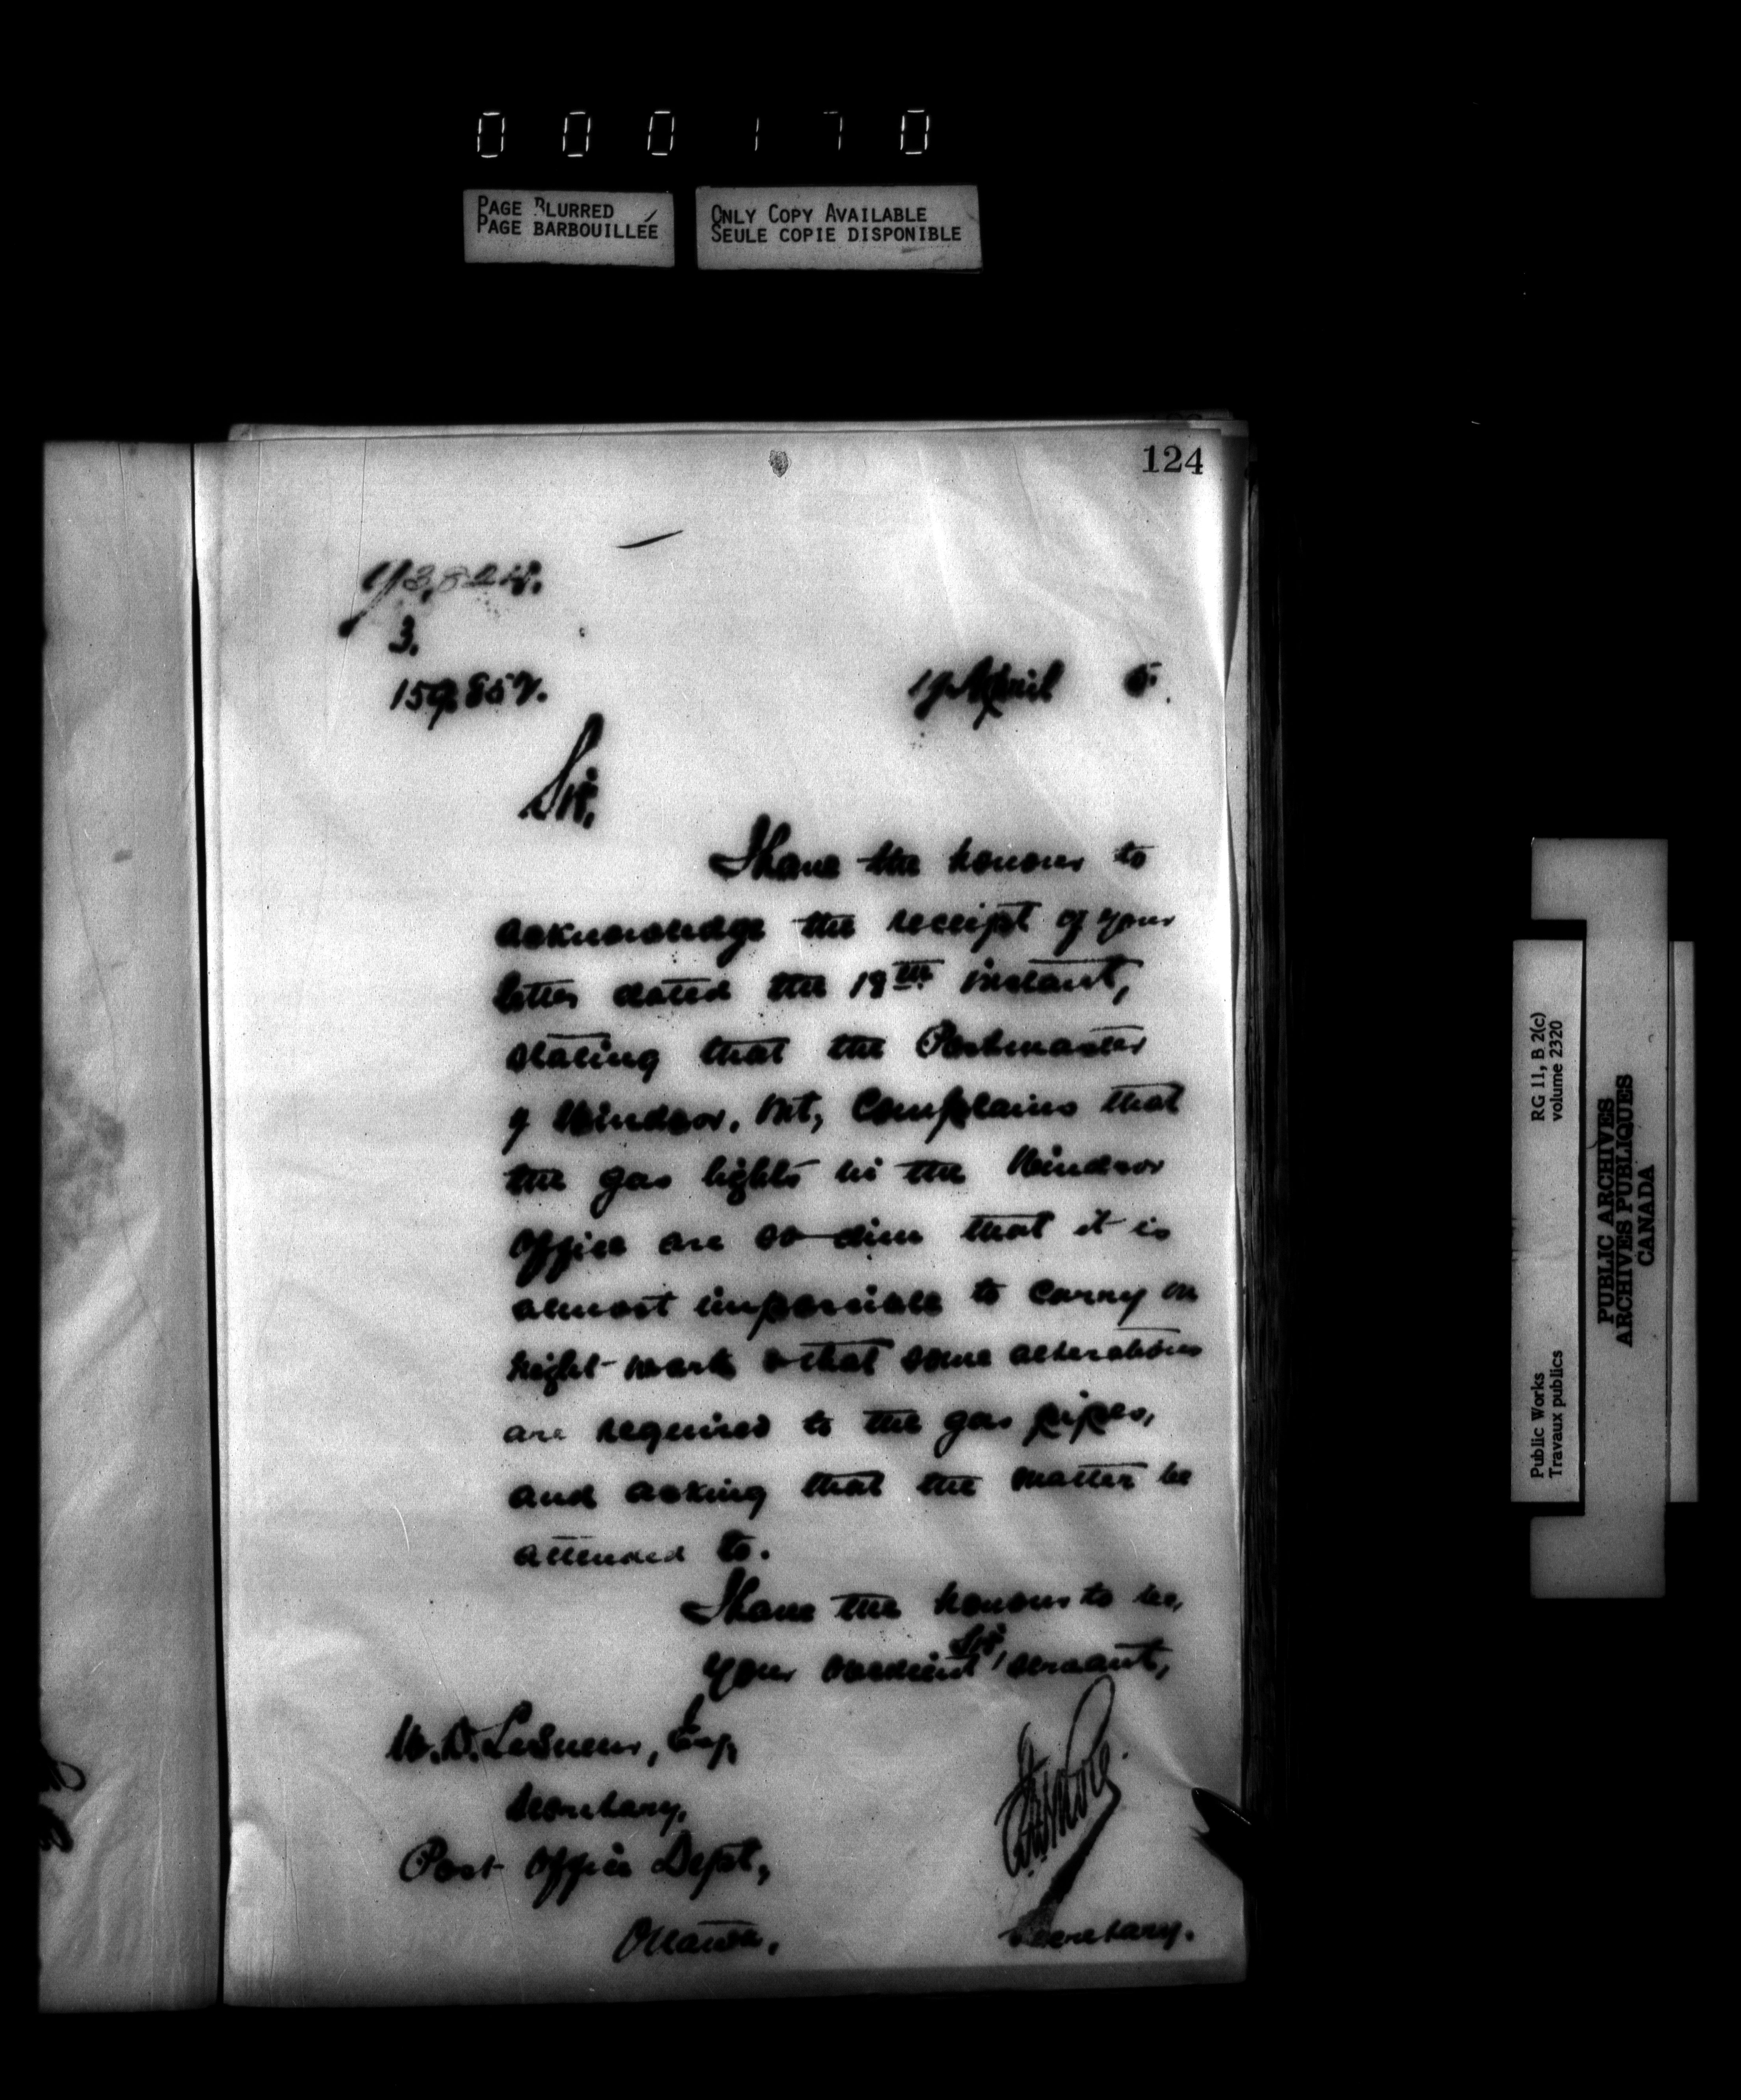 000170
PAGE BLURRED
PAGE BARBOUILLÉE
ONLY COPY AVAILABLE
SEULE COPIE DISPONIBLE
124
3.
159,857.
19 April 5.
Sir,
I have the honour to
acknowledge the receipt of your
letter dated the 18th instant,
stating that the Postmaster
of Windsor, Ont, complains that
the gas lights in the Windsor
Office are so dim that it is
almost impossible to carry on
night-work & that some alterations
are required to the gas pipes,
and asking that the matter be
attended to.
I have the honour to be,
Sir,
Your obedient servant,
W. D. LeSueur, Esq,
Secretary,
Post Office Dept,
Ottawa.
Secretary.
Public Works
Travaux publics
RG 11, B 2(c)
volume 2320
PUBLIC ARCHIVES
ARCHIVES PUBLIQUES
CANADA